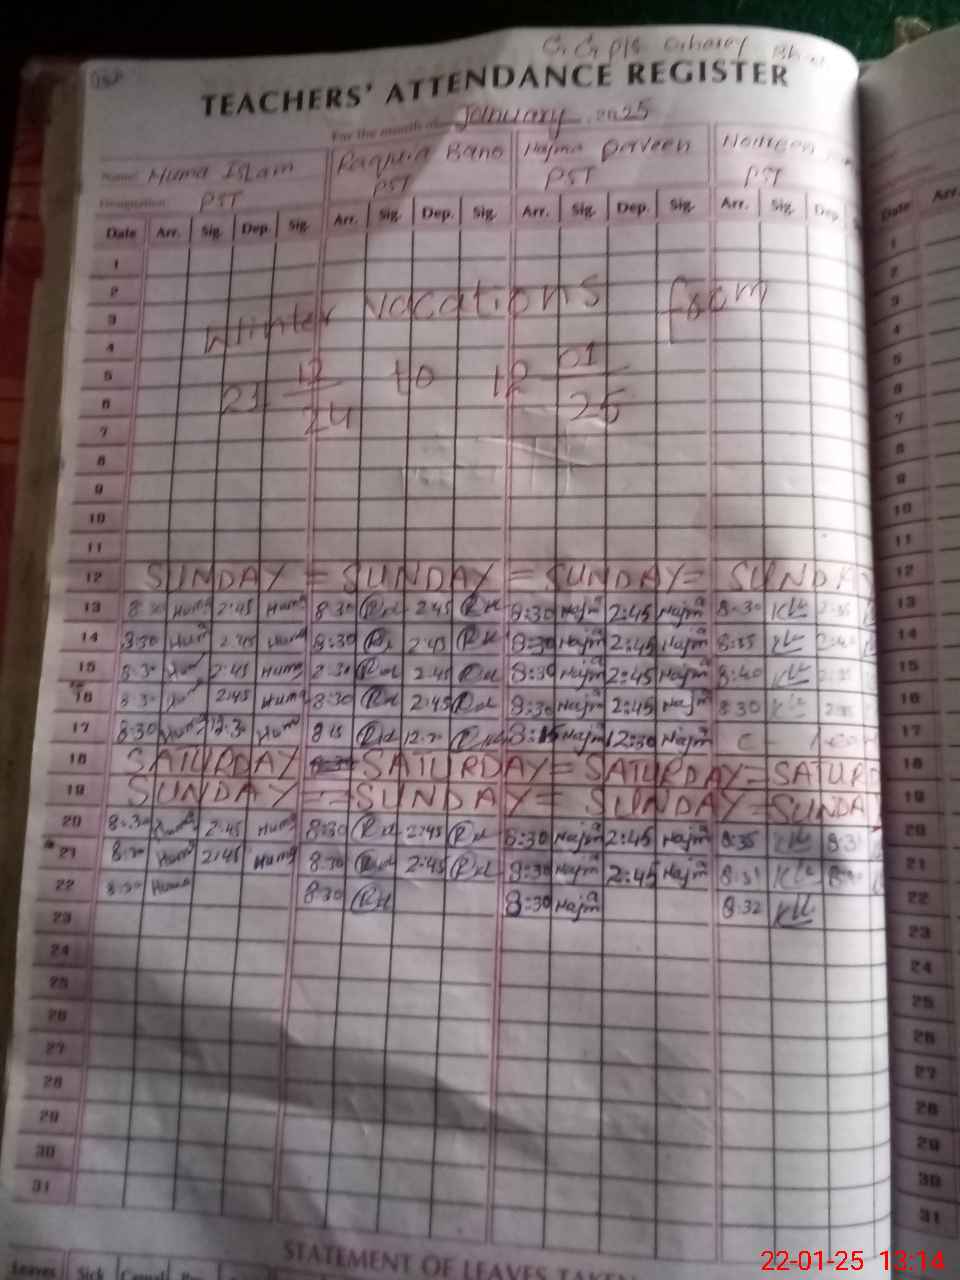 G. G. P/S
TEACHERS' ATTENDANCE REGISTER
For the month of January 2025
Name: Huma Islam Raquia Bano Najma Perveen
Designation: PST PST PST PST
Date Arr. Sig. Dep. Sig. Arr. Sig. Dep. Sig. Arr. Sig. Dep. Sig. Arr. Sig. Dep.
1
2
3 Winter vacations from
4
5 23 12/24 to 12 01/25
6
7
8
9
10
11
12 SUNDAY = SUNDAY = SUNDAY = SUNDAY
13 8:30 Huma 2:45 Huma 8:30 2:45 8:30 Najma 2:45 Najma 8:30
14 8:30 Huma 2:45 Huma 8:30 2:45 8:30 Najma 2:45 Najma 8:35
15 8:30 Huma 2:45 Huma 8:30 2:45 8:30 Najma 2:45 Najma 8:40
16 8:30 2:45 Huma 8:30 2:45 8:30 Najma 2:45 Najma 8:30
17 8:30 Huma 12:30 Huma 8:15 12:30 8:15 Najma 12:30 Najma
18 SATURDAY SATURDAY = SATURDAY = SATURD
19 SUNDAY = SUNDAY = SUNDAY = SUNDA
20 8:30 Huma 2:45 Huma 8:30 2:45 8:30 Najma 2:45 Najma 8:35
21 8:30 Huma 2:45 Huma 8:30 2:45 8:30 Najma 2:45 Najma 8:31
22 8:30 Huma 8:30 8:30 Najma 8:32
23
24
25
26
27
28
29
30
31
STATEMENT OF LEAVES TAKEN
Leaves Sick Casual
Date Arr.
1
2
3
4
5
6
7
8
9
10
11
12
13
14
15
16
17
18
19
20
21
22
23
24
25
26
27
28
29
30
31
22-01-25 13:14